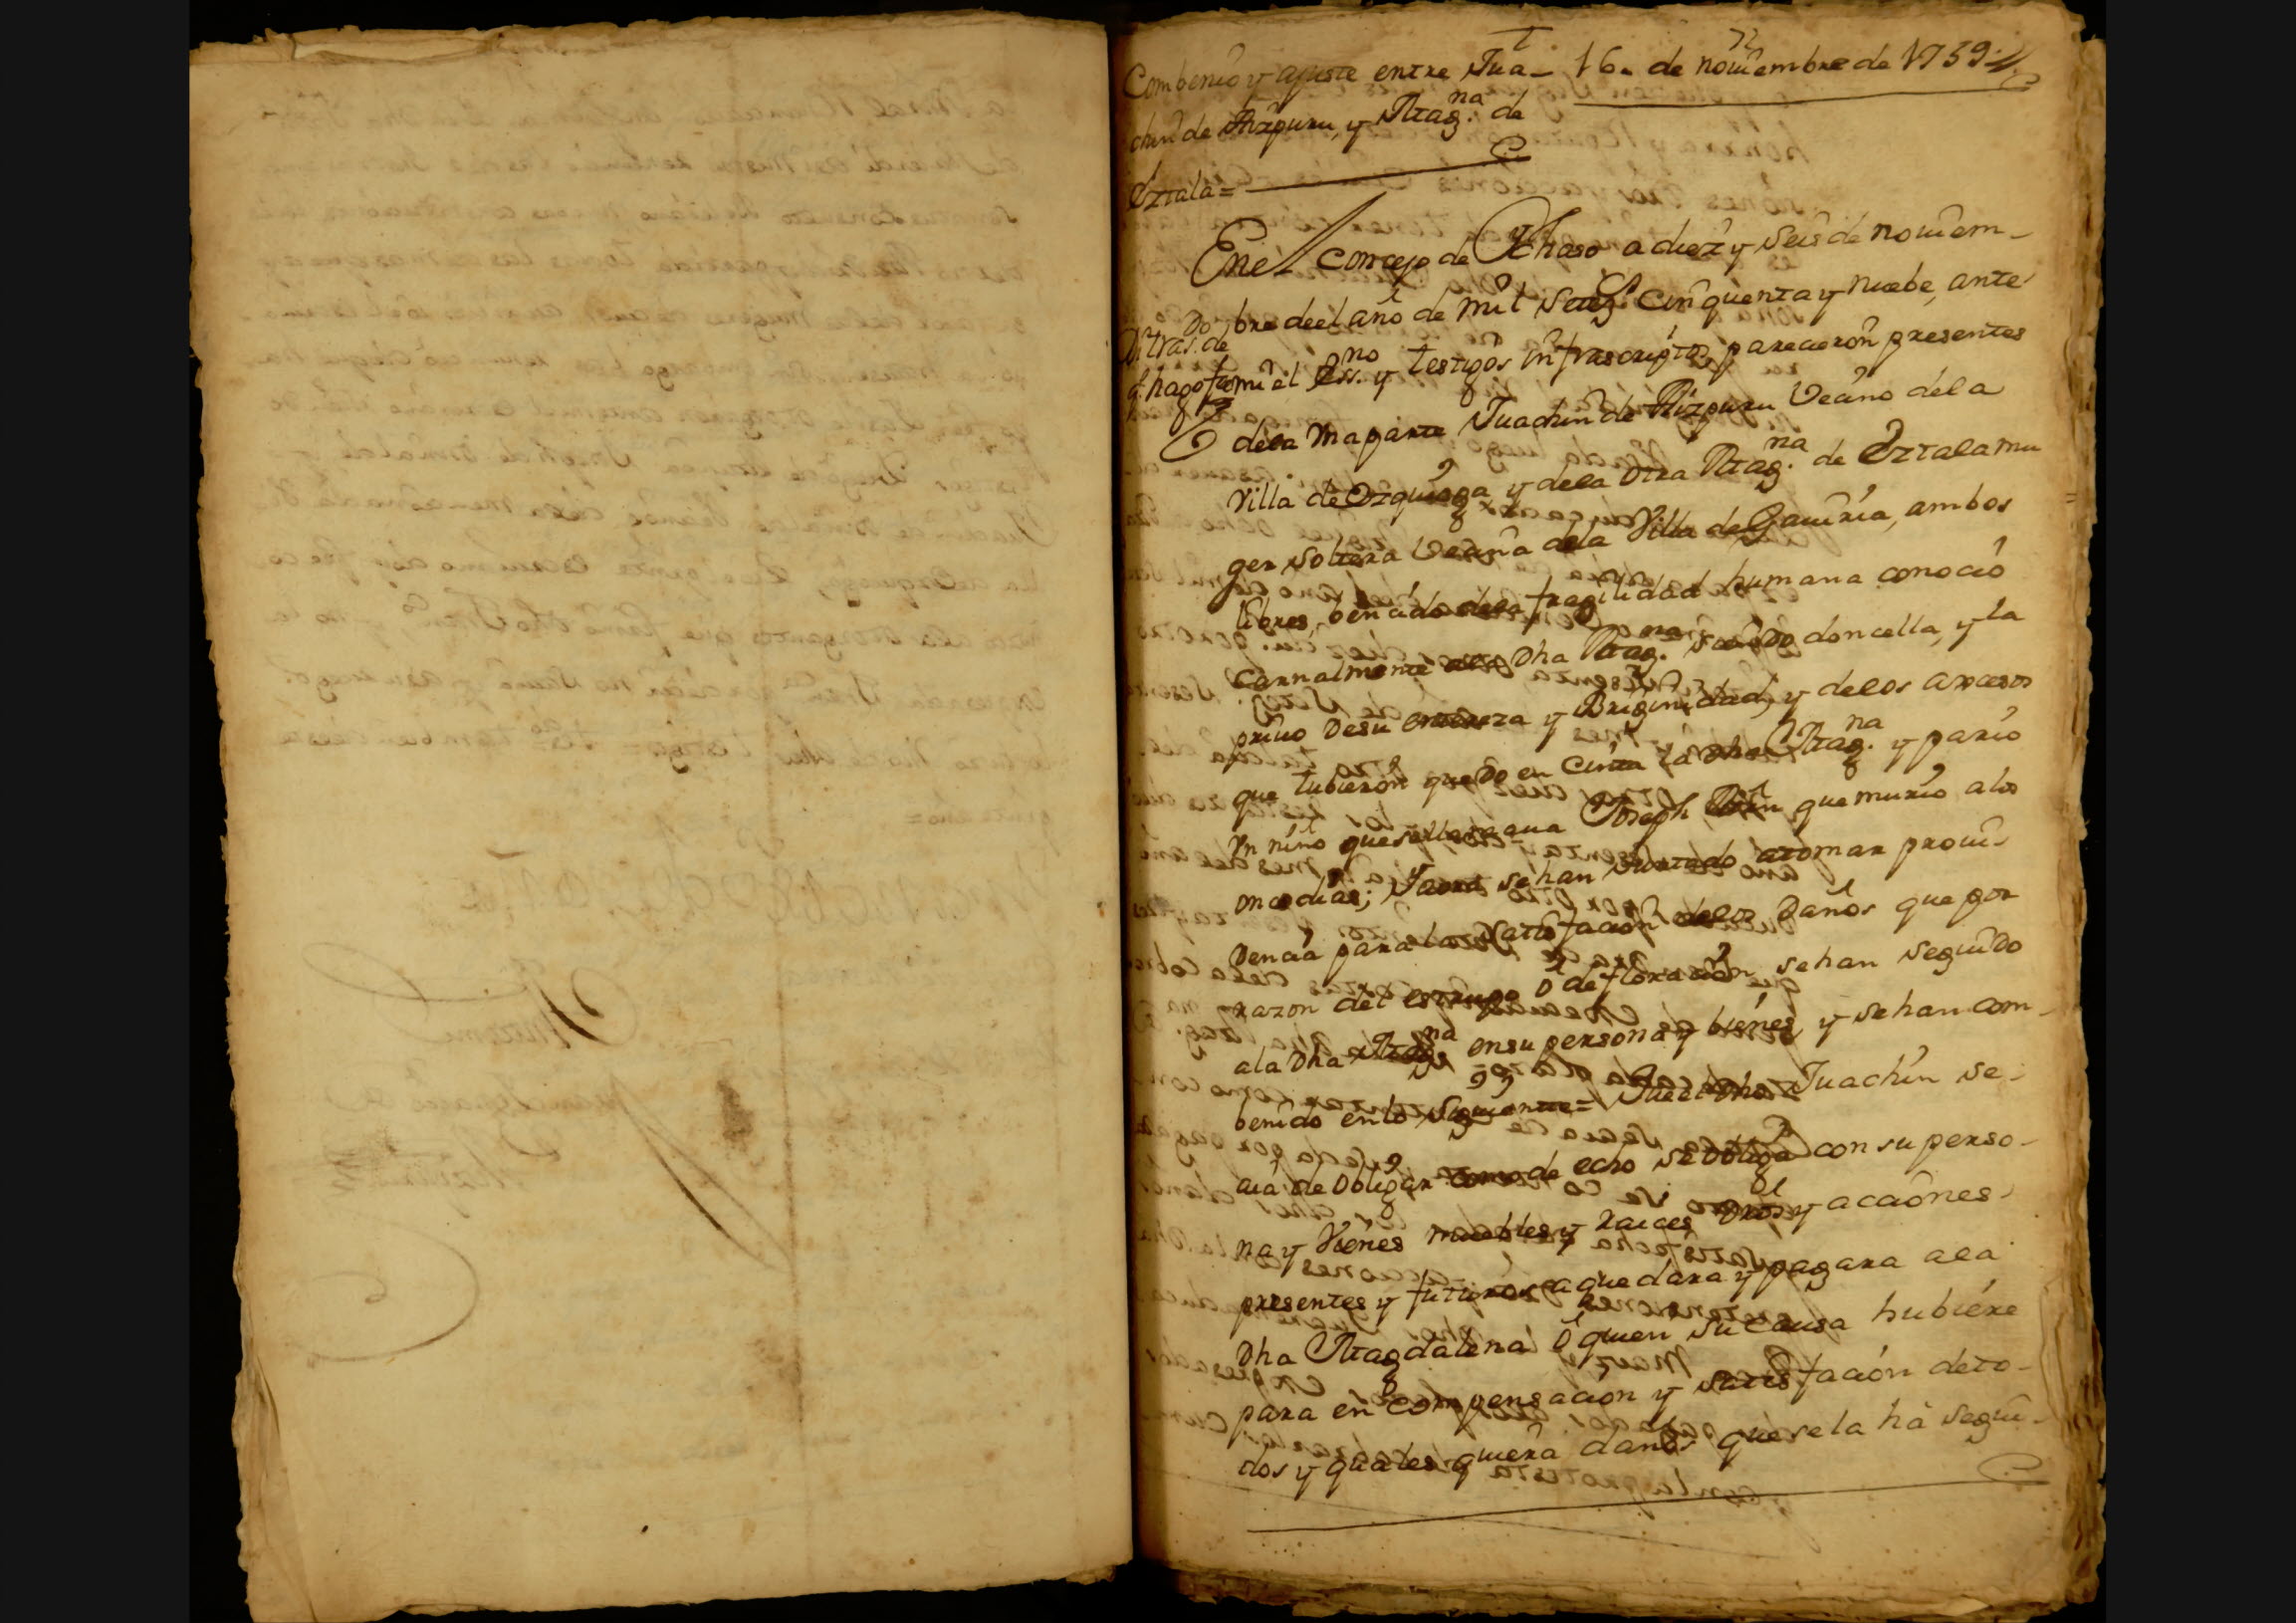 72
Combenio y ajuste entre Jua-
chin de Aizpuru, y Mag.na de
Eztala=
16. de nouiembre de 1759
En el Concejo de Ychaso a diez y seis de nouiem-
bre de el año de mil Seteg.s Cinquenta y nuebe, ante
mi el Ess.no y testigos infrascriptos, parecieron presentes
Di tras.do de
q. hago fe
dela una parte Juachin de Aizpuru Vecino dela
Villa de Ezquioga y dela otra Mag.na de Eztala mu
ger soltera Vecina dela Villa de Gauiria, ambos
libres, bencido dela fragilidad humana conocio
Carnalmente ala dha Mag.na siendo doncella, y la
priuo de su entereza y Birginidad, y delos accesos
que tubieron quedo en cinta la dha Mag.na y pario
Vn niño que se llamaua Joseph que murio a los
once dias; Y aora se han juntado atomar proui-
dencia para la satisfacion delos daños que por
razon del estrupo o defloracion se han seguido
ala dha Mag.na en su persona y bienes, y se han com-
benido en lo Siguiente= Que el dho Juachin se
aia de obligar como de echo se obliga con su perso-
na y Vienes muebles y raices dros y acciones
presentes y futuros a que dara y pagara ala
dha Magdalena o quien su causa hubiere
para en compensacion y satisfacion de to-
dos y quales quiera daños que se la ha segui-